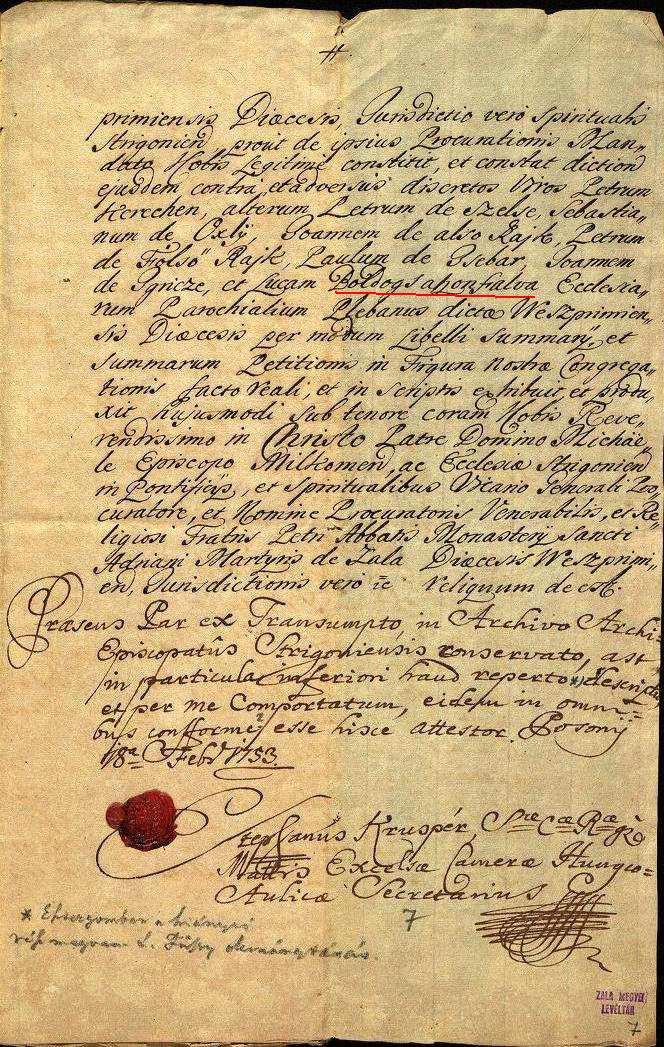 #
primiensis Diœcesis, Jurisdictio verò Spiritualis
Strigonien, prout de ipsius Procurationis Man„
dato Nobis Legitime constitit, et constat diction
ejusdem contra, et adversus discretos Viros Petrum
Kerechen, alterum Petrum de Szelse, Sebastia„
num de Oxly, Joannem de also Rajk, Petrum
de Folsö Rajk, Paulum de Csebar, Joannem
de Igricze, et Lucam Boldogsahonfalva Ecclesia„
rum Parochialium Plebanus dictæ Weszprimien„
sis Diœcesis per modum Libelli Summarij, et
summarum Petitionis in Figura Nostræ Congrega„
tionis facto reali, et in scriptis exhibuit, et produ„
xit hujusmodi sub tenore coram Nobis Reve„
rendissimo in Christo Patre Domino Michäe„
le Episcopo Milkomen, ac Ecclesiæ Strigonien
in Pontificijs, et Spiritualibus Vicario Generali Pro„
curatore, et Nomine Procuratoris Venerabilis, et Re„
ligiosi Fratris Petri Abbatis Monasterij Sancti
Adriani Martyris de Zala Diœcesis Weszprimi„
en, Jurisdictionis vero &c Reliquum de est.
Præsens Par ex Transumpto, in Archivo Archi
Episcopatûs Strigoniensis conservato, ast
in particula inferiori haud reperto * descriptum
et per me Comportatum, eidem in omni=
bus conforme esse hisce attestor. Posonij
18a Febr 1753.
Stephanus Kruspér, Sæ Cæ Ræ
Mattis Excelsæ Cameræ Hungco=
Aulicæ Secretarius
7
* Esztergomban a hiányzó
rész megvan L. Füssy
ZALA MEGYEI
LEVÉLTÁR
7